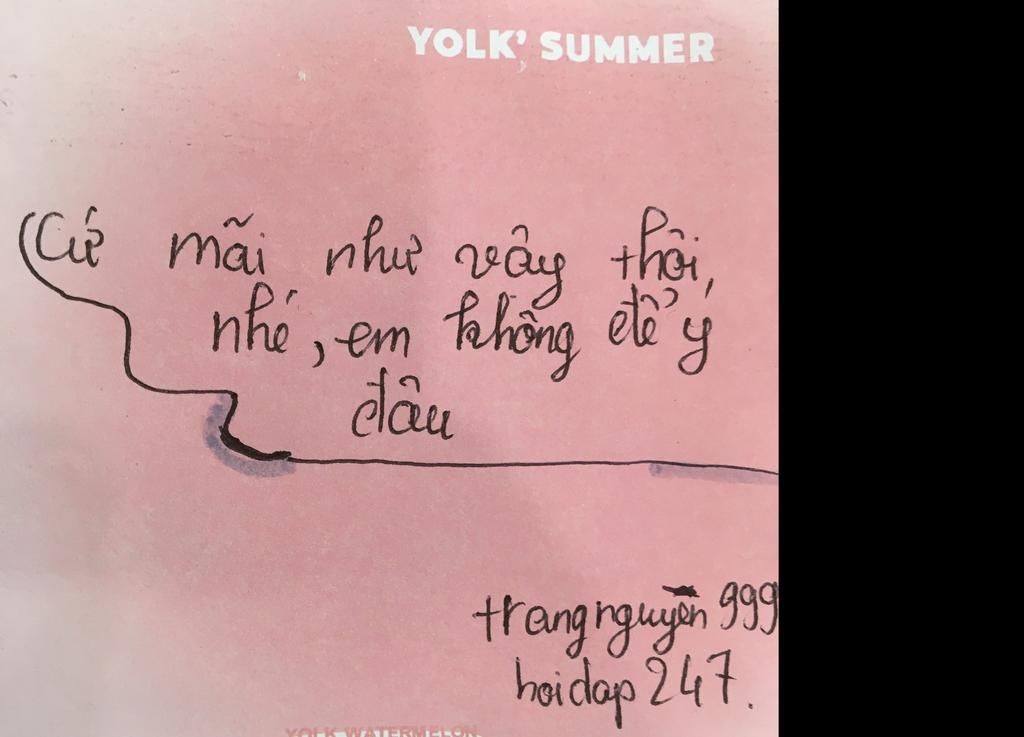 YOLK' SUMMER
Cứ mãi như vây thôi,
nhé, em không để ý
đâu
trangnguyên 999
hoidap 247.
YOLK WATERMELON